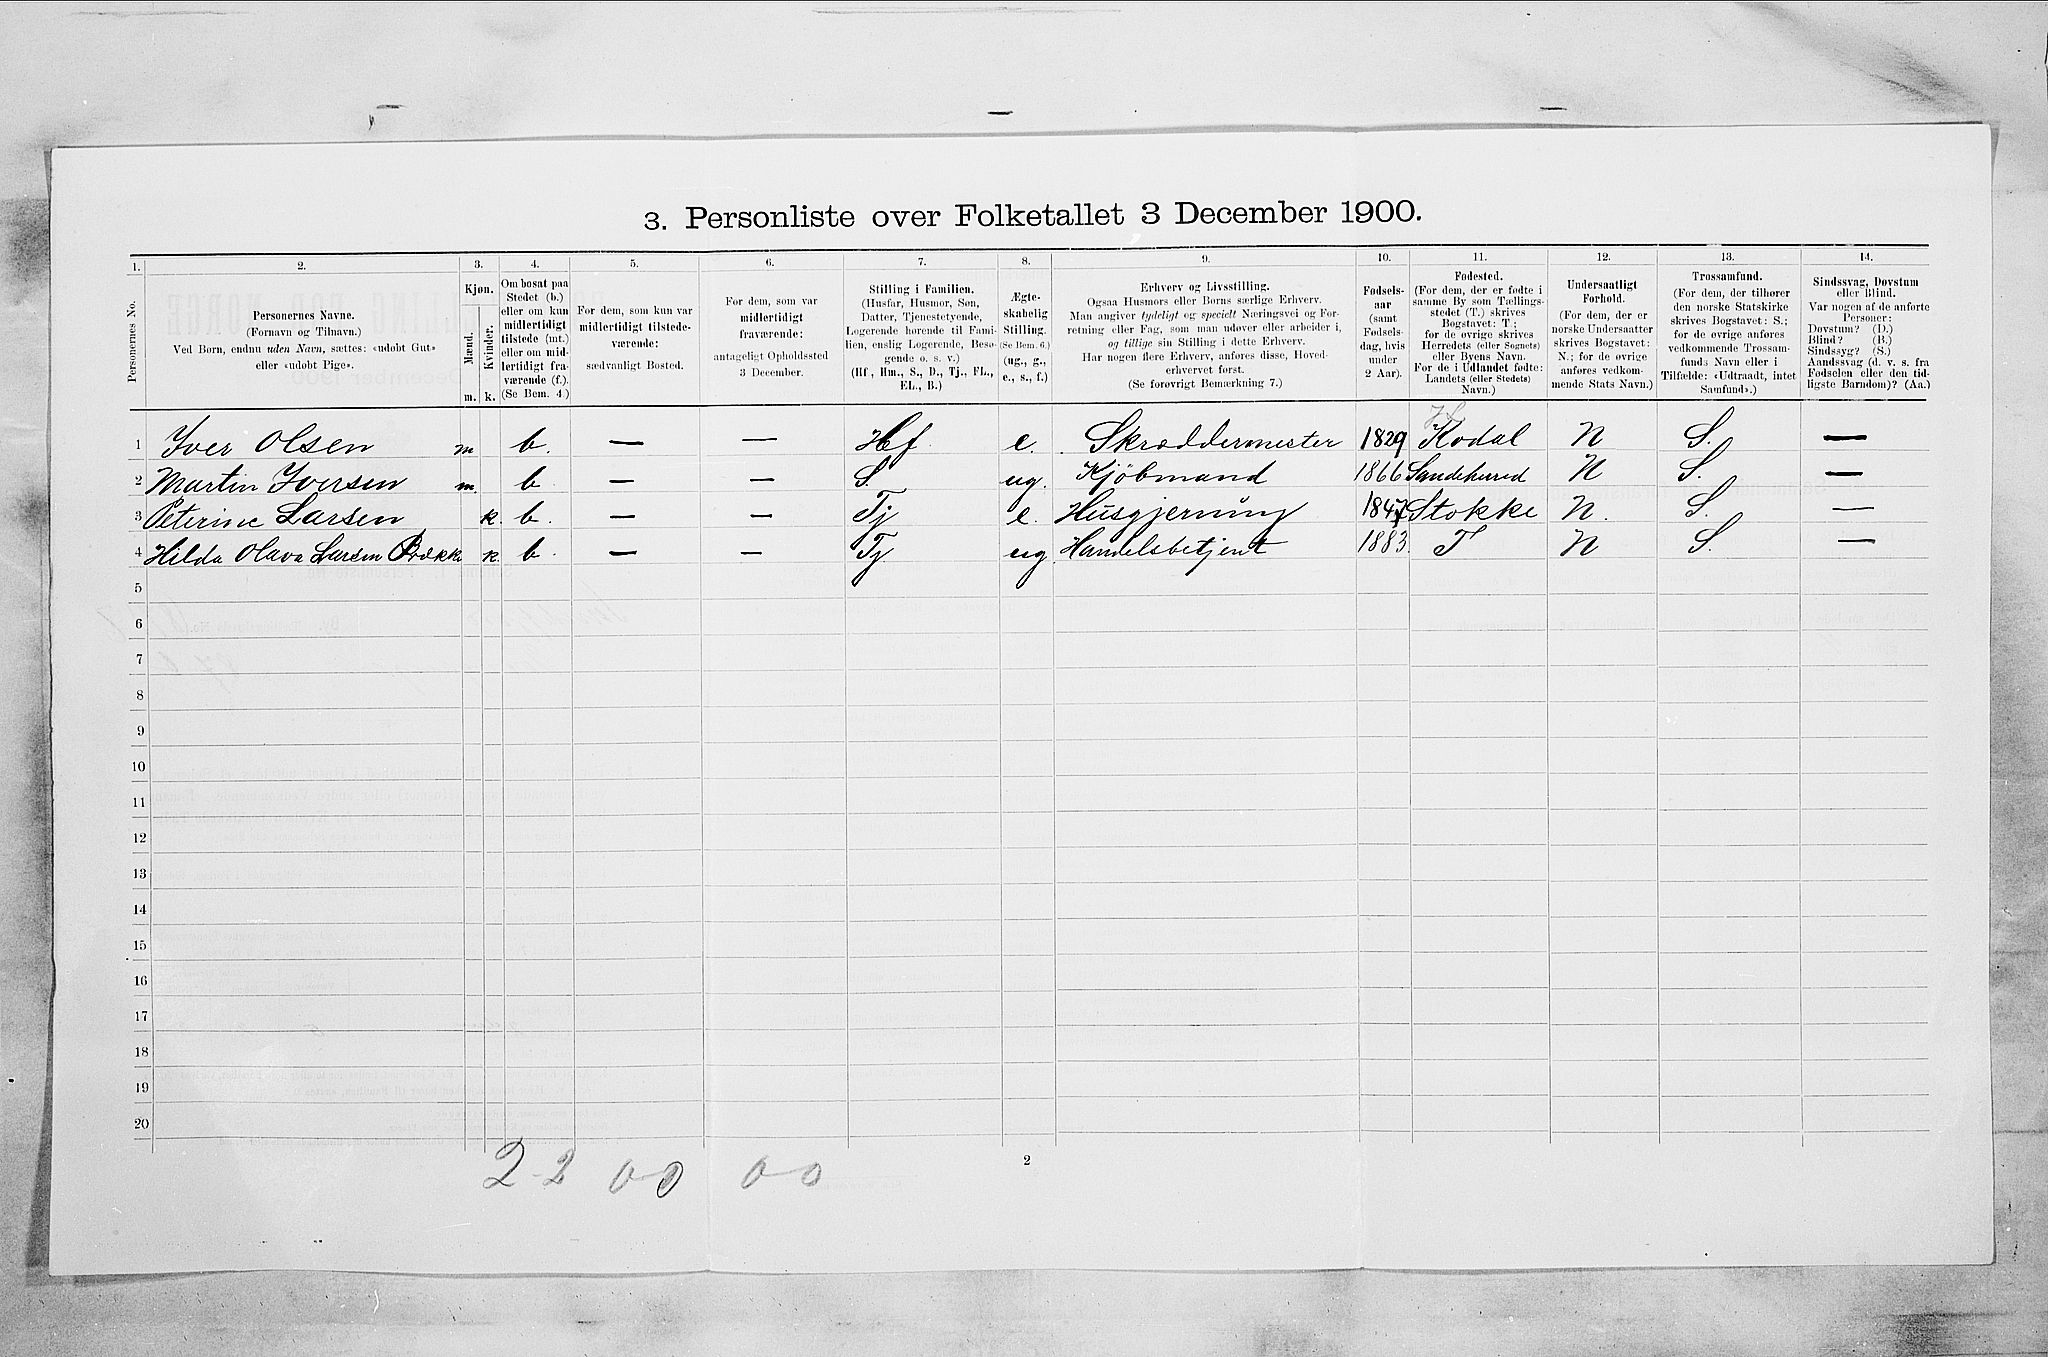 3. Personliste over Folketallet 3 December 1900.
1. 2. 3. 4. 5. 6. 7. 8. 9. 10. 11. 12. 13. 14.
Personernes No.
Personernes Navne.
(Fornavn og Tilnavn.)
Ved Børn, endnu uden Navn, sættes: «udøbt Gut»
eller «udøbt Pige».
Kjøn.
Mænd.
Kvinder.
m. k.
Om bosat paa
Stedet (b.)
eller om kun
midlertidigt
tilstede (mt.)
eller om mid-
lertidigt fra-
værende (f.).
(Se Bem. 4.)
For dem, som kun var
midlertidigt tilstede-
værende:
sædvanligt Bosted.
For dem, som var
midlertidigt
fraværende:
antageligt Opholdssted
3 December.
Stilling i Familien.
(Husfar, Husmor, Søn,
Datter, Tjenestetyende,
Logerende hørende til Fami-
lien, enslig Logerende, Besø-
gende o. s. v.)
(Hf., Hm., S., D., Tj., FL.,
EL., B.)
Ægte-
skabelig
Stilling.
(Se Bem. 6.)
(ug., g.,
e., s., f.)
Erhverv og Livsstilling.
Ogsaa Husmors eller Børns særlige Erhverv.
Man angiver tydeligt og specielt Næringsvei og For-
retning eller Fag, som man udøver eller arbeider i,
og tillige sin Stilling i dette Erhverv.
Har nogen flere Erhverv, anføres disse, Hoved-
erhvervet først.
(Se forøvrigt Bemærkning 7.)
Fødsels-
aar
(samt
Fødsels-
dag, hvis
under
2 Aar).
Fødested.
(For dem, der er fødte i
samme By som Tællings-
stedet (T.) skrives
Bogstavet: T;
for de øvrige skrives
Herredets (eller Sognets)
eller Byens Navn.
For de i Udlandet fødte:
Landets (eller Stedets)
Navn.)
Undersaatligt
Forhold.
(For dem, der er
norske Undersaatter
skrives Bogstavet:
N.; for de øvrige
anføres vedkom-
mende Stats Navn.)
Trossamfund.
(For dem, der tilhører
den norske Statskirke
skrives Bogstavet: S.;
for de øvrige anføres
vedkommende Trossam-
funds Navn eller i
Tilfælde: «Udtraadt, intet
Samfund».)
Sindssvag, Døvstum
eller Blind.
Var nogen af de anførte
Personer:
Døvstum? (D.)
Blind? (B.)
Sindssyg? (S.)
Aandssvag (d. v. s. fra
Fødselen eller den tid-
ligste Barndom)? (Aa.)
1 Iver Olsen m b. — — Hf. e. Skræddermester 1829 Kodal N S. —
2 Martin Iversen m. b. — — S. ug. Kjöbmand 1866 Sandeherred N S. —
3 Peterine Larsen k. b. — — Tj e. Husgjerning 1847 Stokke N. S. —
4 Hilda Olava Larsen Bække k. b. — — Tj. ug. Handelsbetjent 1883. T N S. —
5
6
7
8
9
10
11
12
13
14
15
16
17
18
19
20
2-2 0-0 0-0
2